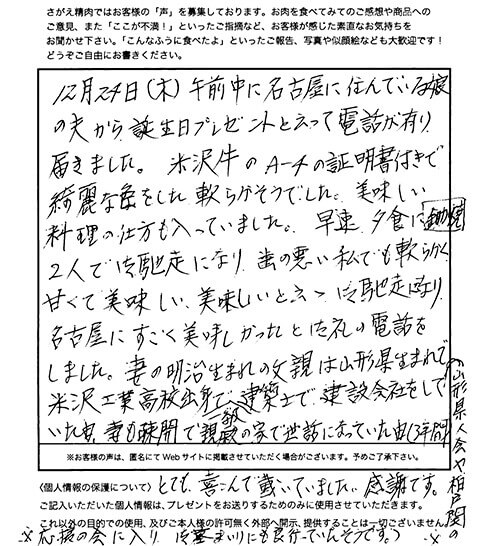 さがえ精肉ではお客様の「声」を募集しております。お肉を食べてみてのご感想や商品への
ご意見、また「ここが不満！」といったご指摘など、お客様が感じた素直なお気持ちを
お聞かせ下さい。「こんなふうに食べたよ」といったご報告、写真や似顔絵なども大歓迎です！
どうぞご自由にお書きください。
12月24日(木)午前中に名古屋に住んでいる娘
の夫から誕生日プレゼントと云って電話が有り
届きました。米沢牛のA-4の証明書付きで
綺麗な色をした軟らかそうでした。美味しい
料理の仕方も入っていました。早速夕食に鋤焼
2人で御馳走になり歯の悪い私でも軟らかく
甘くて美味しい、美味しいと云って御馳走になり
名古屋にすごく美味しかったと御礼の電話を
しました。妻の明治生まれの父親は山形県生まれで
米沢工業高校出身で、建築士で建設会社をして
いた由、妻も疎開で親戚の家で世話になっていた由(3年間)
※お客様の声は、匿名にてWebサイトに掲載させていただく場合がございます。予めご了承下さい。
〈個人情報の保護について〉とても喜こんで戴いていました。感謝です。
ご記入いただいた個人情報は、プレゼントをお送りするためのみに使用させていただきます。
これ以外の目的での使用、及びご本人様の許可無く外部へ開示、提供することは一切ございません。
(山形県人会や柏戸関の※
※応援の会に入り御墓まいりにも良く行っていたそうです。)